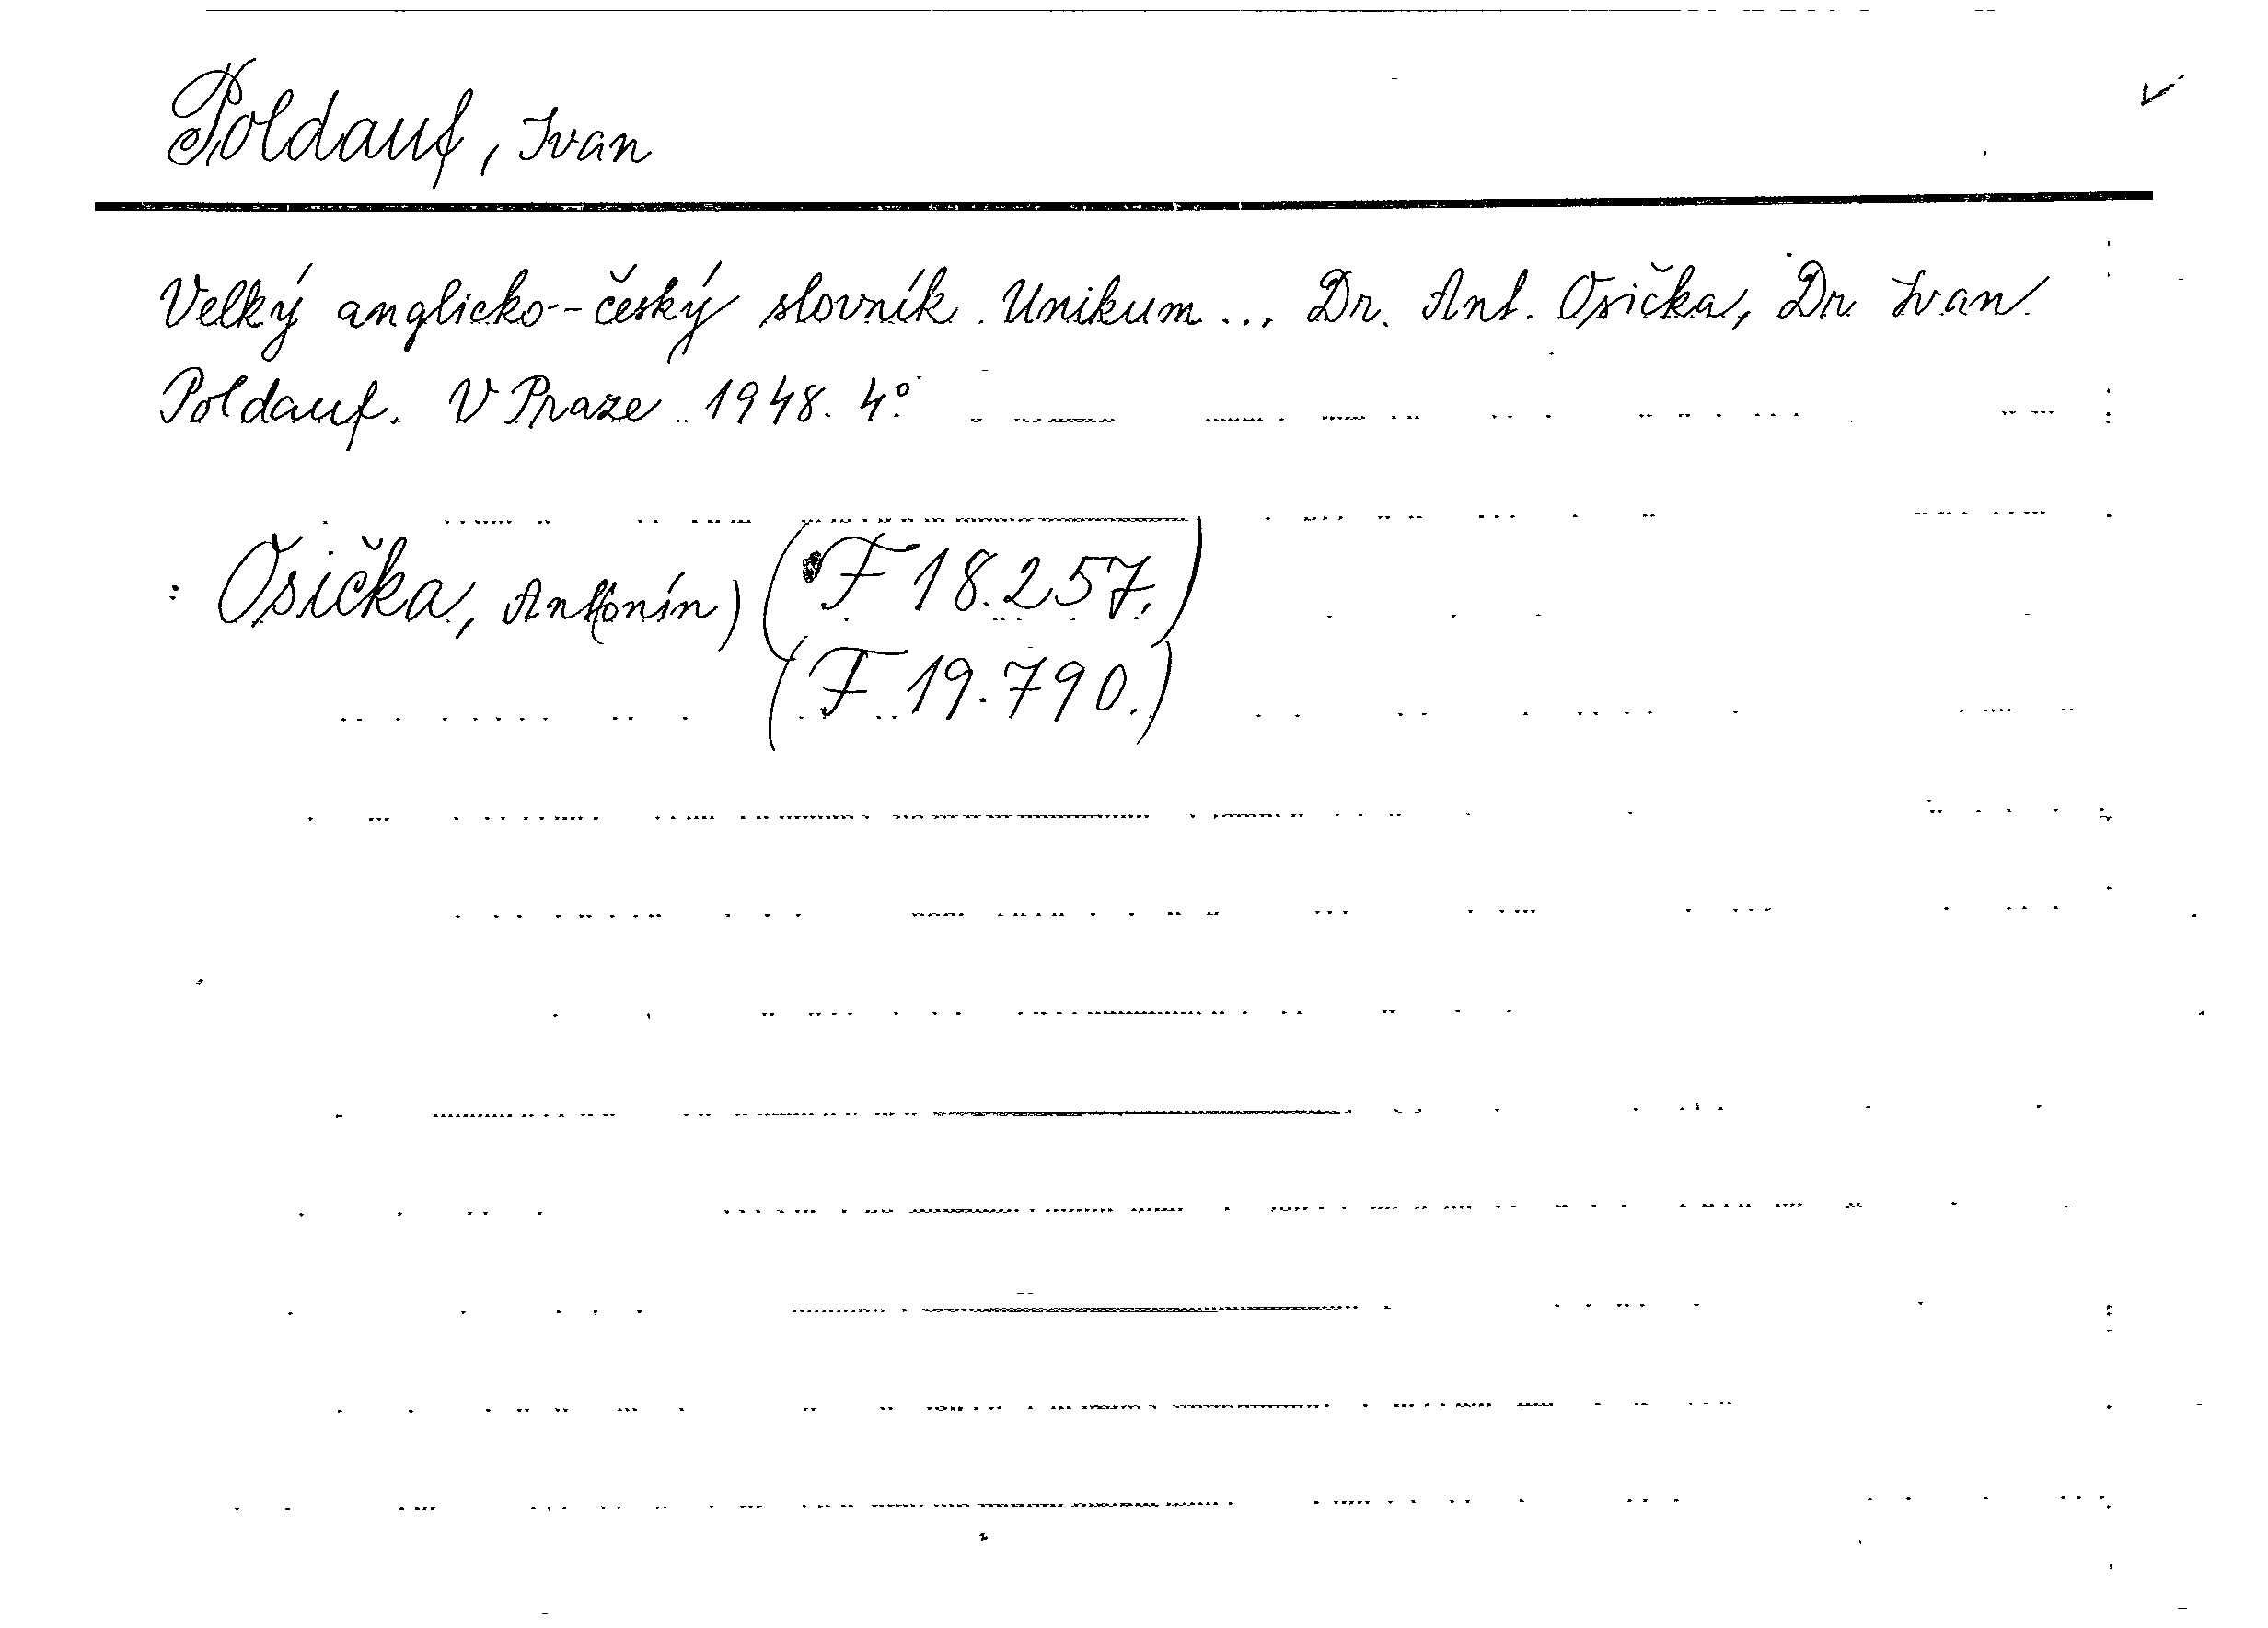 Poldauf, Ivan
Velký anglicko-český slovník. Unikum... Dr. Ant. Osička, Dr. Ivan
Poldauf. V Praze 1948. 4°.
: Osička, Ant(onín) (F 18.257.)
(F 19.790.)